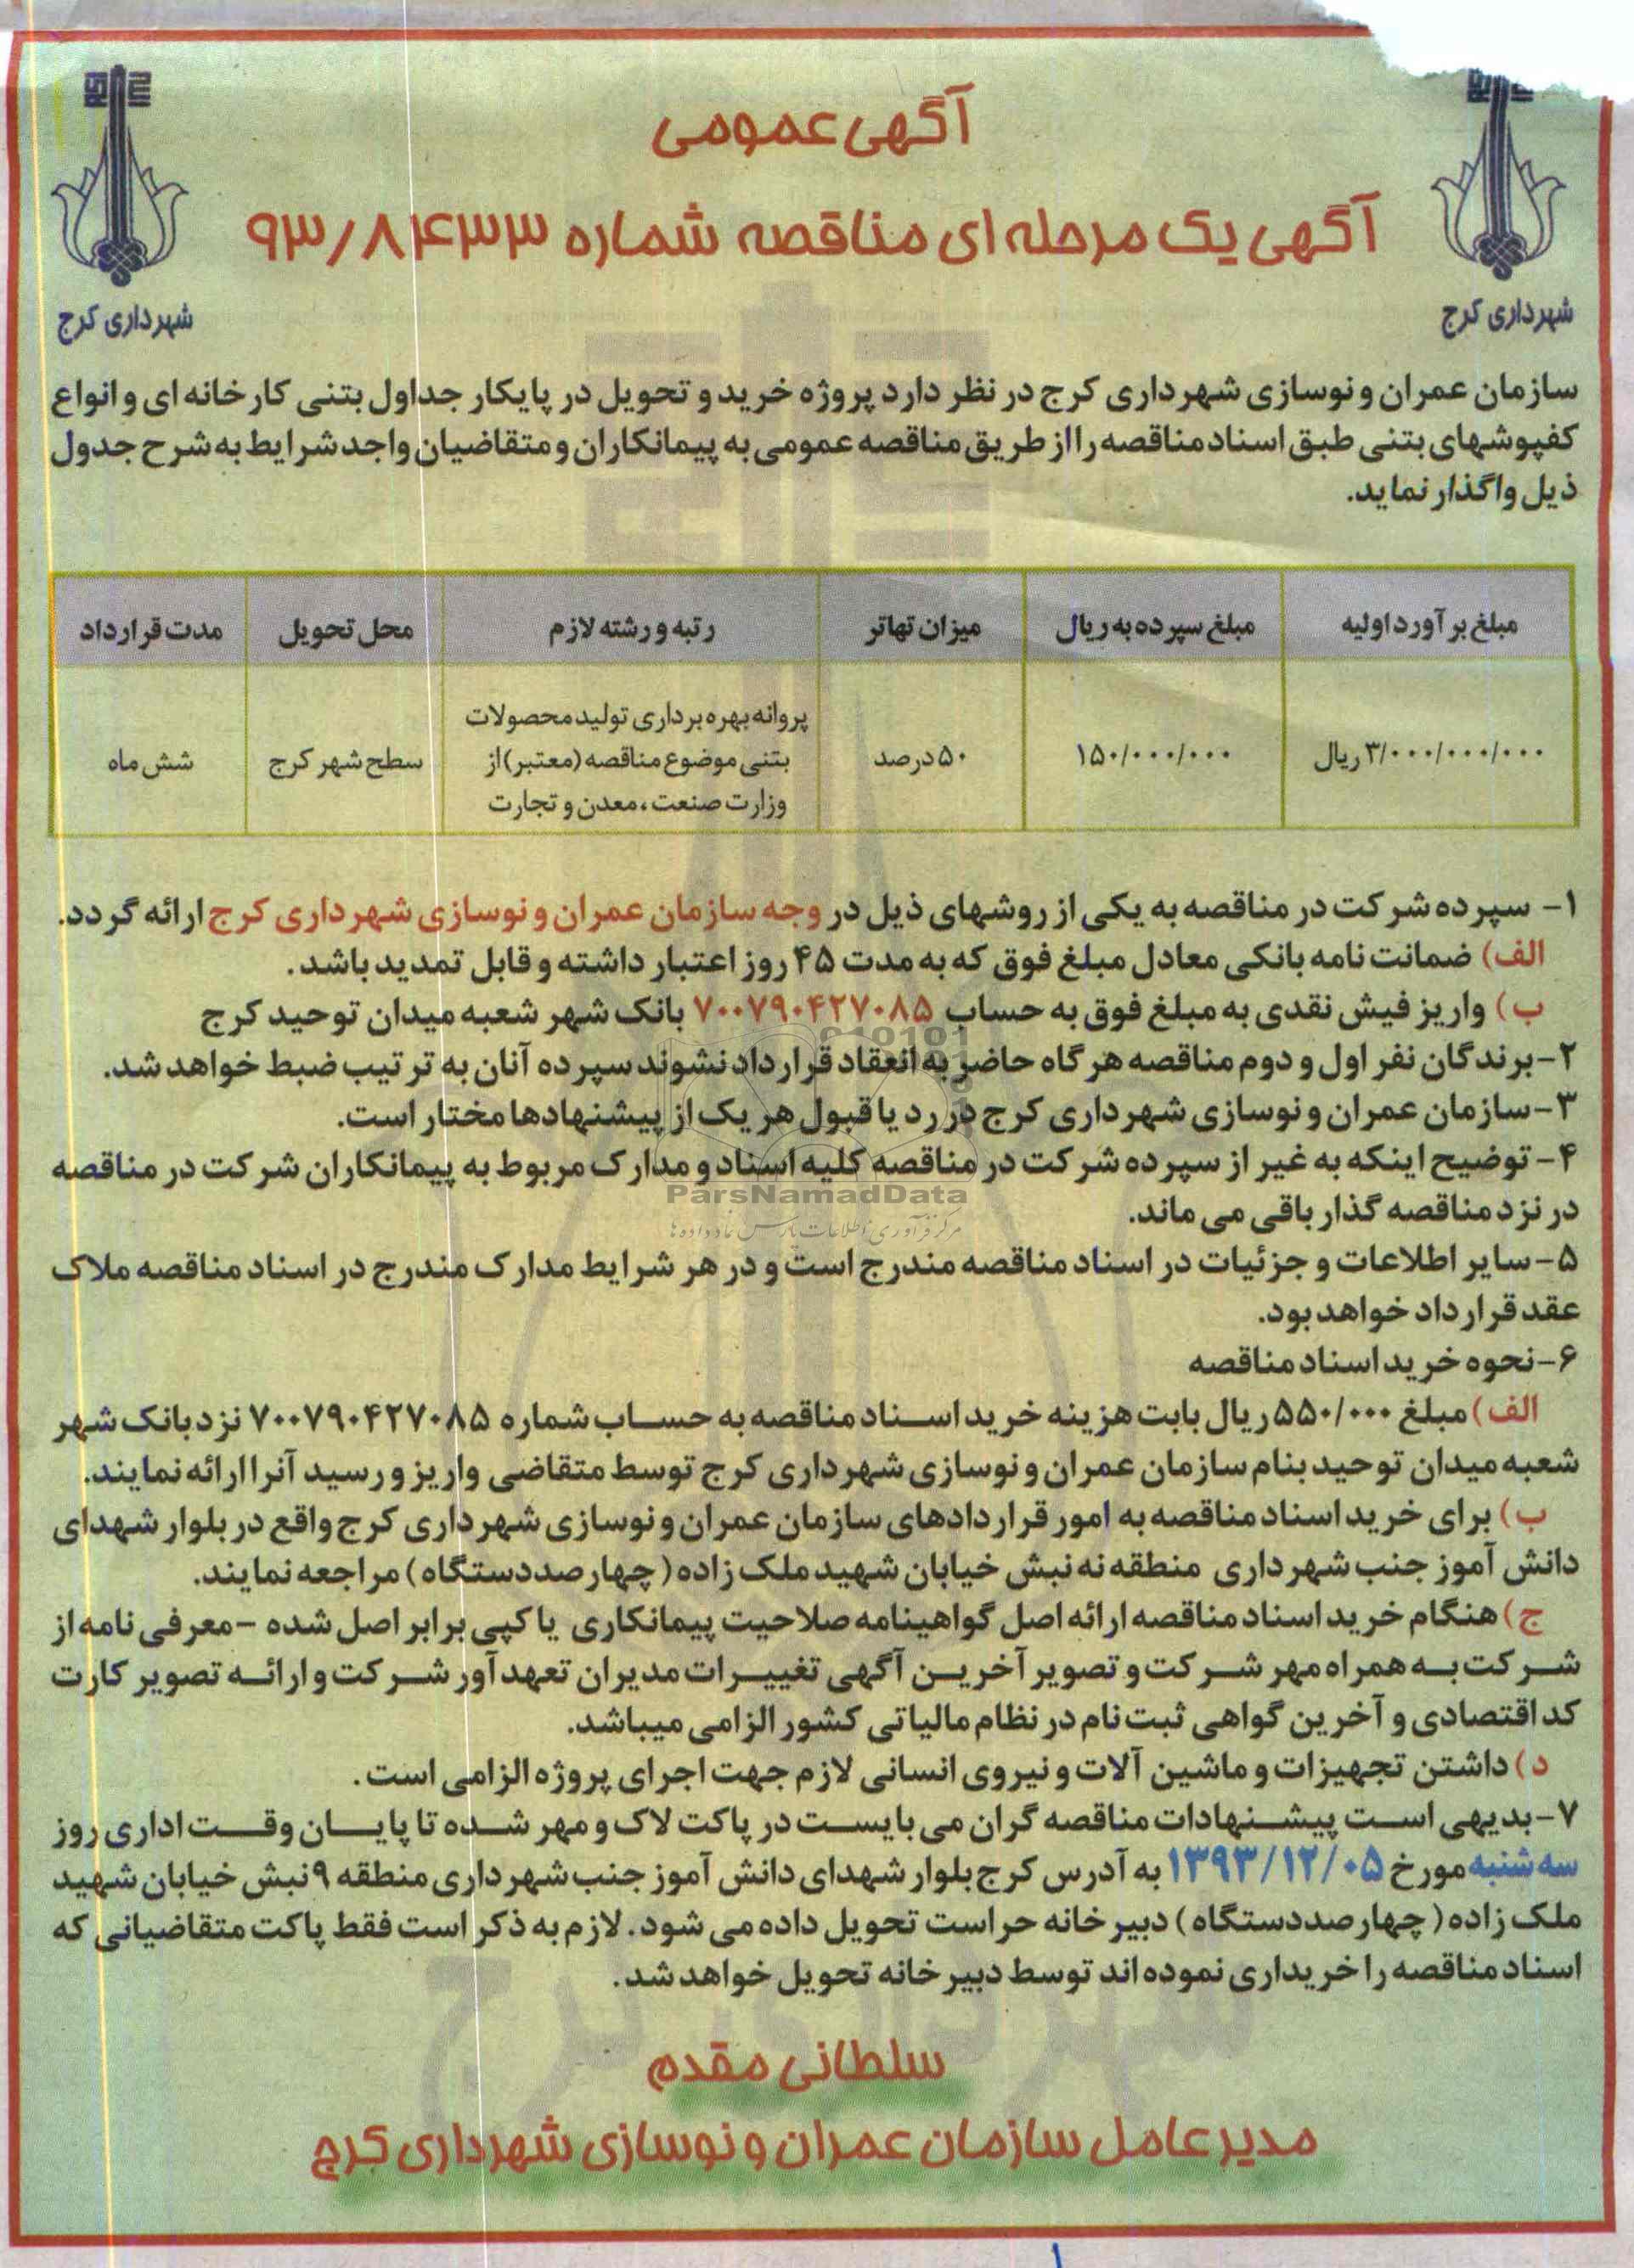 آگهی عمومی
آگهی یک مرحله ای مناقصه شماره ۹۳/۸۴۳۳
شهرداری کرج
شهرداری کرج
سازمان عمران و نوسازی شهرداری کرج در نظر دارد پروژه خرید و تحویل در پایکار جداول بتنی کارخانه ای و انواع
کفپوشهای بتنی طبق اسناد مناقصه را از طریق مناقصه عمومی به پیمانکاران و متقاضیان واجد شرایط به شرح جدول
ذیل واگذار نماید.
مبلغ برآورد اولیه مبلغ سپرده به ریال میزان تهاتر رتبه و رشته لازم محل تحویل مدت قرارداد
۳/۰۰۰/۰۰۰/۰۰۰ ریال ۱۵۰/۰۰۰/۰۰۰ ۵۰ درصد پروانه بهره برداری تولید محصولات
بتنی موضوع مناقصه (معتبر) از
وزارت صنعت، معدن و تجارت
سطح شهر کرج شش ماه
۱- سپرده شرکت در مناقصه به یکی از روشهای ذیل در وجه سازمان عمران و نوسازی شهرداری کرج ارائه گردد.
الف) ضمانت نامه بانکی معادل مبلغ فوق که به مدت ۴۵ روز اعتبار داشته و قابل تمدید باشد.
ب) واریز فیش نقدی به مبلغ فوق به حساب ۷۰۰۷۹۰۴۲۷۰۸۵ بانک شهر شعبه میدان توحید کرج
۲-برندگان نفر اول و دوم مناقصه هرگاه حاضر به انعقاد قرارداد نشوند سپرده آنان به ترتیب ضبط خواهد شد.
۳-سازمان عمران و نوسازی شهرداری کرج در رد یا قبول هر یک از پیشنهادها مختار است.
۴- توضیح اینکه به غیر از سپرده شرکت در مناقصه کلیه اسناد و مدارک مربوط به پیمانکاران شرکت در مناقصه
ParsNamadData
در نزد مناقصه گذار باقی می ماند.
مرکز فرآوری اطلاعات پارس نماد داده ها
۵-سایر اطلاعات و جزئیات در اسناد مناقصه مندرج است و در هر شرایط مدارک مندرج در اسناد مناقصه ملاک
عقد قرارداد خواهد بود.
۶-نحوه خرید اسناد مناقصه
الف) مبلغ ۵۵۰/۰۰۰ ریال بابت هزینه خرید اسناد مناقصه به حساب شماره ۷۰۰۷۹۰۴۲۷۰۸۵ نزد بانک شهر
شعبه میدان توحید بنام سازمان عمران و نوسازی شهرداری کرج توسط متقاضی واریز و رسید آنرا ارائه نمایند.
ب) برای خرید اسناد مناقصه به امور قراردادهای سازمان عمران و نوسازی شهرداری کرج واقع در بلوار شهدای
دانش آموز جنب شهرداری منطقه نه نبش خیابان شهید ملک زاده (چهارصددستگاه) مراجعه نمایند.
ج) هنگام خرید اسناد مناقصه ارائه اصل گواهینامه صلاحیت پیمانکاری یا کپی برابر اصل شده -معرفی نامه از
شرکت به همراه مهر شرکت و تصویر آخرین آگهی تغییرات مدیران تعهدآور شرکت و ارائه تصویر کارت
کد اقتصادی و آخرین گواهی ثبت نام در نظام مالیاتی کشور الزامی میباشد.
د) داشتن تجهیزات و ماشین آلات و نیروی انسانی لازم جهت اجرای پروژه الزامی است.
۷-بدیهی است پیشنهادات مناقصه گران می بایست در پاکت لاک و مهر شده تا پایان وقت اداری روز
سه شنبه مورخ ۱۳۹۳/۱۲/۰۵ به آدرس کرج بلوار شهدای دانش آموز جنب شهرداری منطقه ۹ نبش خیابان شهید
ملک زاده (چهارصددستگاه) دبیرخانه حراست تحویل داده می شود. لازم به ذکر است فقط پاکت متقاضیانی که
اسناد مناقصه را خریداری نموده اند توسط دبیرخانه تحویل خواهد شد.
سلطانی مقدم
مدیرعامل سازمان عمران و نوسازی شهرداری کرج